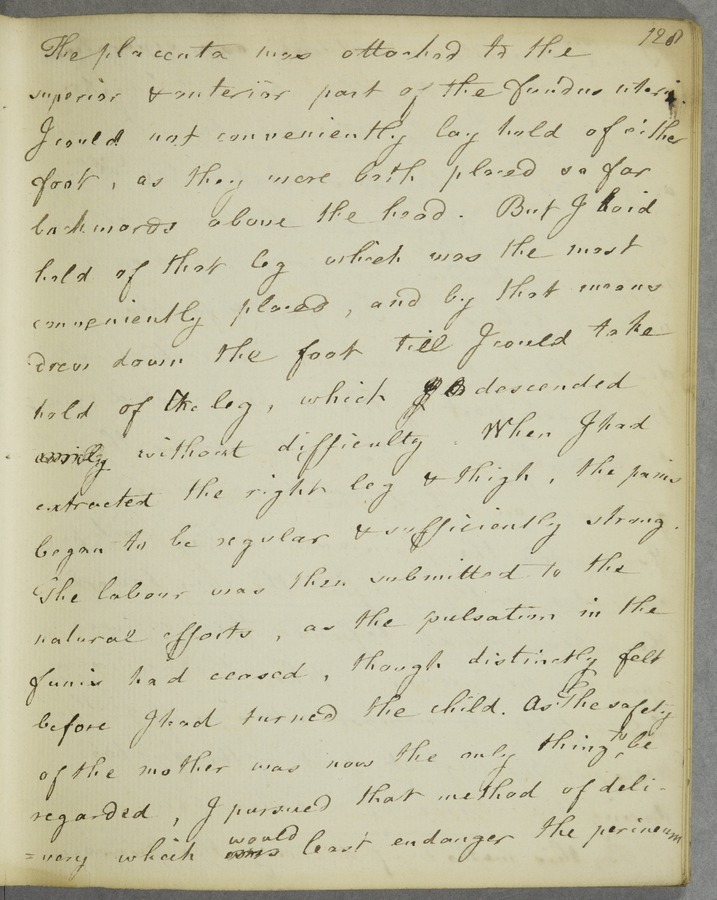 128
The placenta was attached to the
superior & anterior part of the fundus uteri.
I could not conveniently lay hold of either
foot, as they were both placed so far
backwards above the head. But I laid
hold of that leg which was the most
conveniently placed, and by that means
drew down the foot till I could take
hold of the leg, which descended
without difficulty. When I had
extracted the right leg & thigh, the pains
began to be regular & sufficiently strong.
The labour was then submitted to the
natural efforts, as the pulsation in the
funis had ceased, though distinctly felt
before I had turned the child. As the safety
of the mother was now the only thing to be
regarded, I pursued that method of deli-
=very which would least endanger the perineum